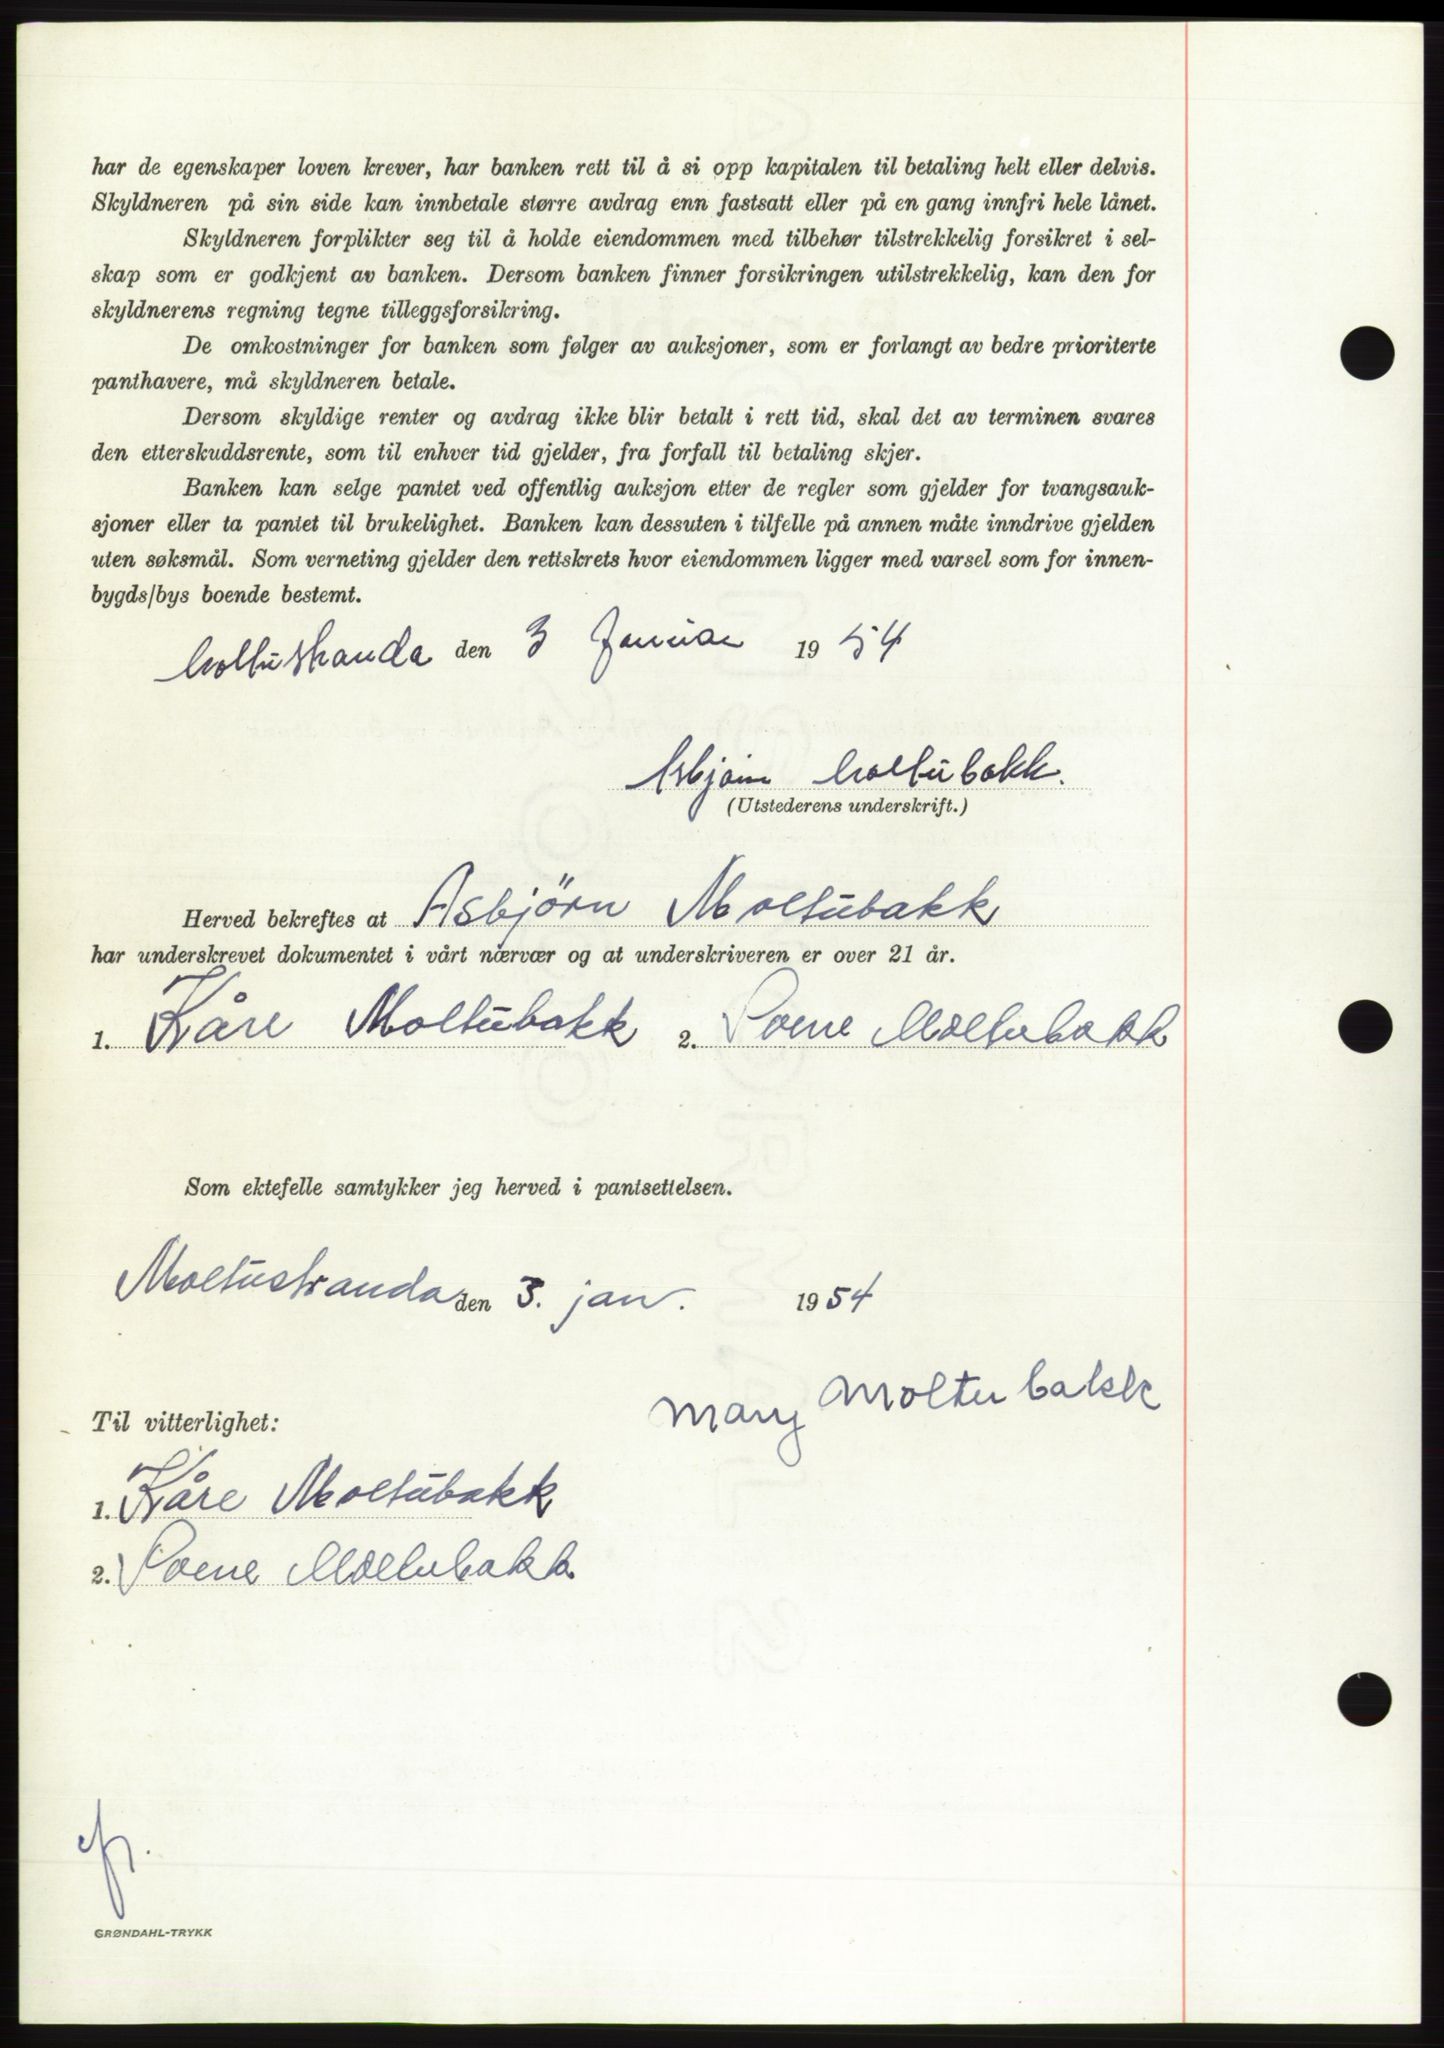 har de egenskaper loven krever, har banken rett til å si opp kapitalen til betaling helt eller delvis.
Skyldneren på sin side kan innbetale større avdrag enn fastsatt eller på en gang innfri hele lånet.
Skyldneren forplikter seg til å holde eiendommen med tilbehør tilstrekkelig forsikret i sel-
skap som er godkjent av banken. Dersom banken finner forsikringen utilstrekkelig, kan den for
skyldnerens regning tegne tilleggsforsikring.
De omkostninger for banken som følger av auksjoner, som er forlangt av bedre prioriterte
panthavere, må skyldneren betale.
Dersom skyldige renter og avdrag ikke blir betalt i rett tid, skal det av terminen svares
den etterskuddsrente, som til enhver tid gjelder, fra forfall til betaling skjer.
Banken kan selge pantet ved offentlig auksjon etter de regler som gjelder for tvangsauk-
sjoner eller ta pantet til brukelighet. Banken kan dessuten i tilfelle på annen måte inndrive gjelden
uten søksmål. Som verneting gjelder den rettskrets hvor eiendommen ligger med varsel som for innen-
bygds/bys boende bestemt.
Moltustranda den 3 Januar 1954
Asbjørn Moltubakk.
(Utstederens underskrift.)
Herved bekreftes at Asbjörn Moltubakk
har underskrevet dokumentet i vårt nærvær og at underskriveren er over 21 år.
1. Kåre Moltubakk 2. Moltubakk
Som ektefelle samtykker jeg herved i pantsettelsen.
Moltustranda den 3. jan. 1954
Mary Moltubakk
Til vitterlighet:
1. Kåre Moltubakk
2. Moltubakk
GRØNDAHL-TRYKK